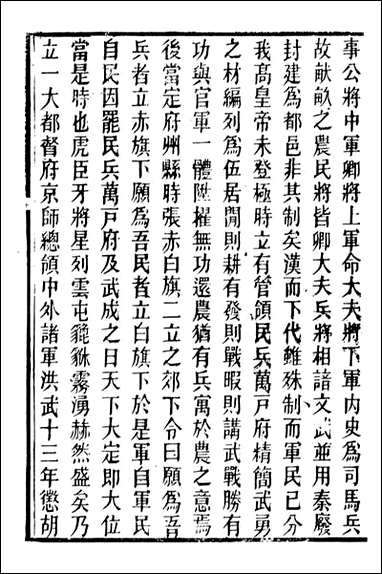 事公將中軍卿將上軍命大夫將下軍内史爲司馬兵
故献畝之農民將皆卿大夫兵將相諳文武並用秦廢
封建爲都邑非其制矣漢而下代雖殊制而軍民已分
我高皇帝未登極時立有管領民兵萬戸府精簡武勇
之材編列爲伍居閒則耕有發則戰暇則講武戰勝有
功與官軍一體陞擢無功還農猶有兵寓於農之意焉
後當定府州縣時張赤白旗二立之郊下令曰願爲吾
兵者立赤旗下願爲吾民者立白旗下於是軍自軍民
自民因罷民兵萬戸府及武成之日天下大定即大位
當是時也虎臣牙將星列雲屯貔貅霧湧赫然盛矣乃
立一大都督府京師總領中外諸軍洪武十三年懲胡